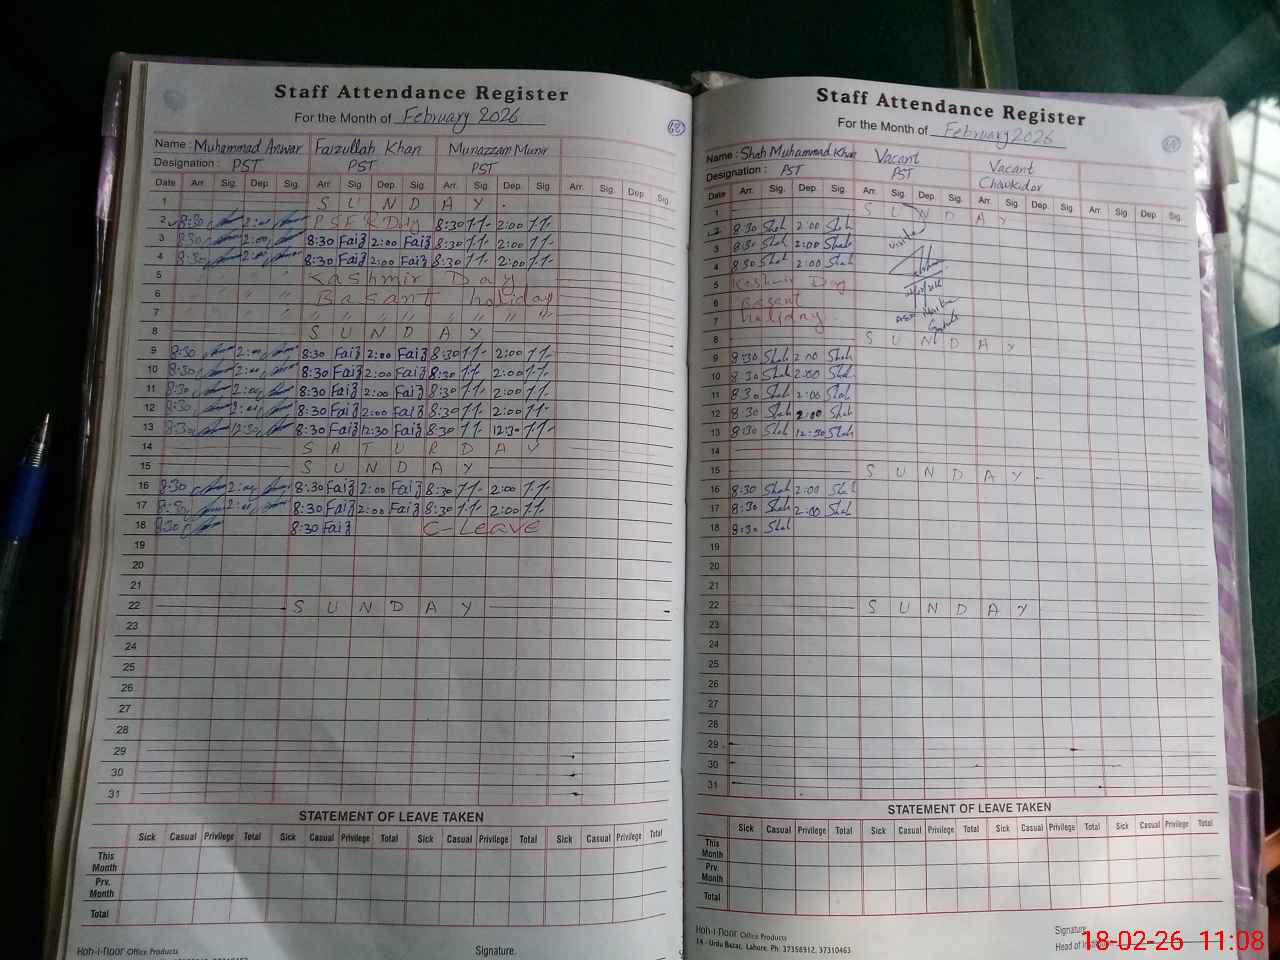 Staff Attendance Register
For the Month of February 2026
68
Name : Muhammad Anwar Faizullah Khan Munazzam Munir
Designation : PST PST PST
Date Arr. Sig. Dep. Sig. Arr. Sig. Dep. Sig. Arr. Sig. Dep. Sig. Arr. Sig. Dep. Sig.
1 S U N D A Y
2 8:30 2:00 Day 8:30 2:00
3 8:30 2:00 8:30 Faiz 2:00 Faiz 8:30 2:00
4 8:30 2:00 8:30 Faiz 2:00 Faiz 8:30 2:00
5 Kashmir Day
6 Basant holiday
7 " " " " " "
8 S U N D A Y
9 8:30 2:00 8:30 Faiz 2:00 Faiz 8:30 2:00
10 8:30 2:00 8:30 Faiz 2:00 Faiz 8:30 2:00
11 8:30 2:00 8:30 Faiz 2:00 Faiz 8:30 2:00
12 8:30 2:00 8:30 Faiz 2:00 Faiz 8:30 2:00
13 8:30 12:30 8:30 Faiz 12:30 Faiz 8:30 12:30
14 S A T U R D A Y
15 S U N D A Y
16 8:30 2:00 8:30 Faiz 2:00 Faiz 8:30 2:00
17 8:30 2:00 8:30 Faiz 2:00 Faiz 8:30 2:00
18 8:30 8:30 Faiz C-Leave
19
20
21
22 S U N D A Y
23
24
25
26
27
28
29
30
31
STATEMENT OF LEAVE TAKEN
Sick Casual Privilege Total Sick Casual Privilege Total Sick Casual Privilege Total Sick Casual Privilege Total
This Month
Prv. Month
Total
Koh-i-Noor Office Products
Signature.
Staff Attendance Register
For the Month of February 2026
Name : Shah Muhammad Khan Vacant Vacant
Designation : PST PST Chowkidar
Date Arr. Sig. Dep. Sig. Arr. Sig. Dep. Sig. Arr. Sig. Dep. Sig. Arr. Sig. Dep. Sig.
1 S U N D A Y
2 8:30 Shah 2:00 Shah
3 8:30 Shah 2:00 Shah
4 8:30 Shah 2:00 Shah
5 Kashmir Day
6 Basant
7 holiday
8 S U N D A Y
9 8:30 Shah 2:00 Shah
10 8:30 Shah 2:00 Shah
11 8:30 Shah 2:00 Shah
12 8:30 Shah 2:00 Shah
13 8:30 Shah 12:30 Shah
14
15 S U N D A Y
16 8:30 Shah 2:00 Shah
17 8:30 Shah 2:00 Shah
18 8:30 Shah
19
20
21
22 S U N D A Y
23
24
25
26
27
28
29
30
31
STATEMENT OF LEAVE TAKEN
Sick Casual Privilege Total Sick Casual Privilege Total Sick Casual Privilege Total Sick Casual Privilege Total
This Month
Prv. Month
Total
Koh-i-Noor Office Products
14 - Urdu Bazar, Lahore. Ph: 37358912, 37310463
Signature
Head of
18-02-26 11:08